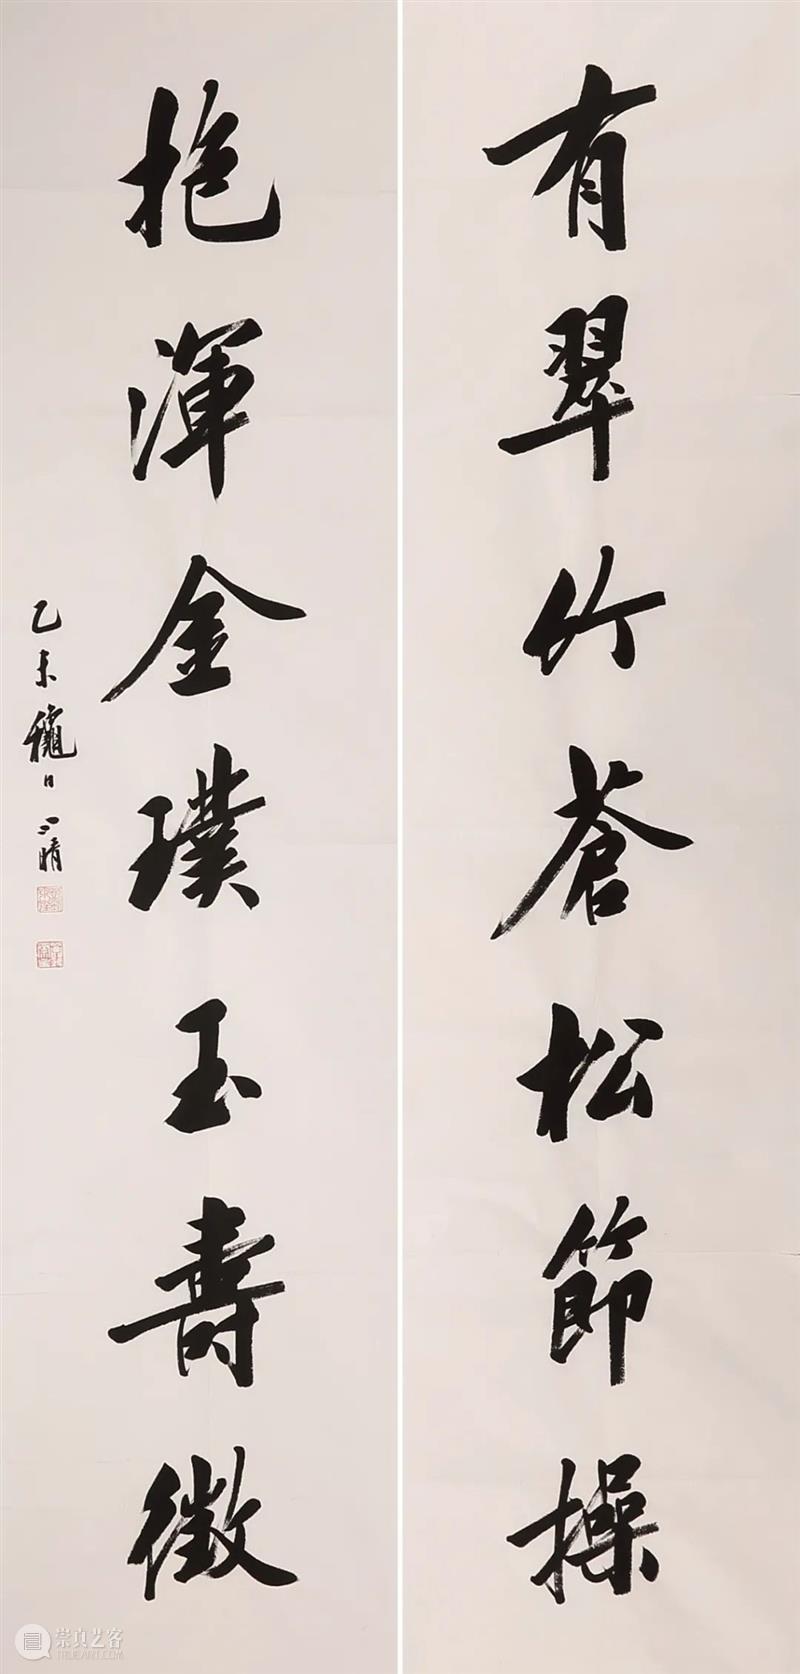 有翠竹蒼松節操
抱渾金璞玉壽徵
乙未穐日
晴
崇真艺客
TRUEART.COM